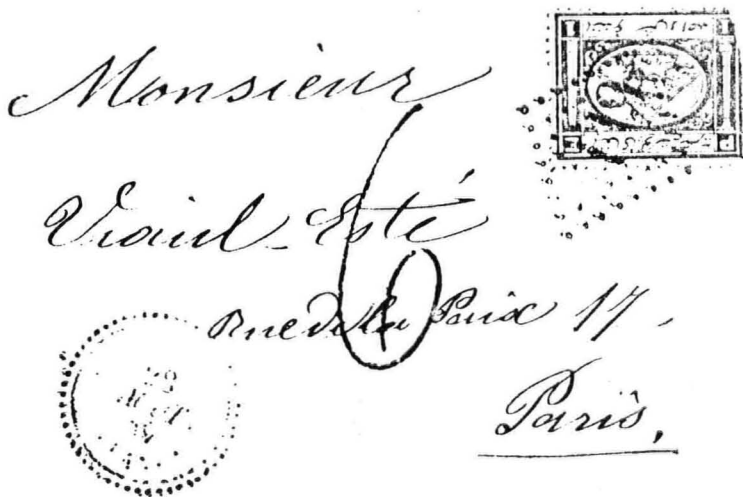 Monsieur
Viaud-Esté
6
Rue de la Paix 17,
Paris,